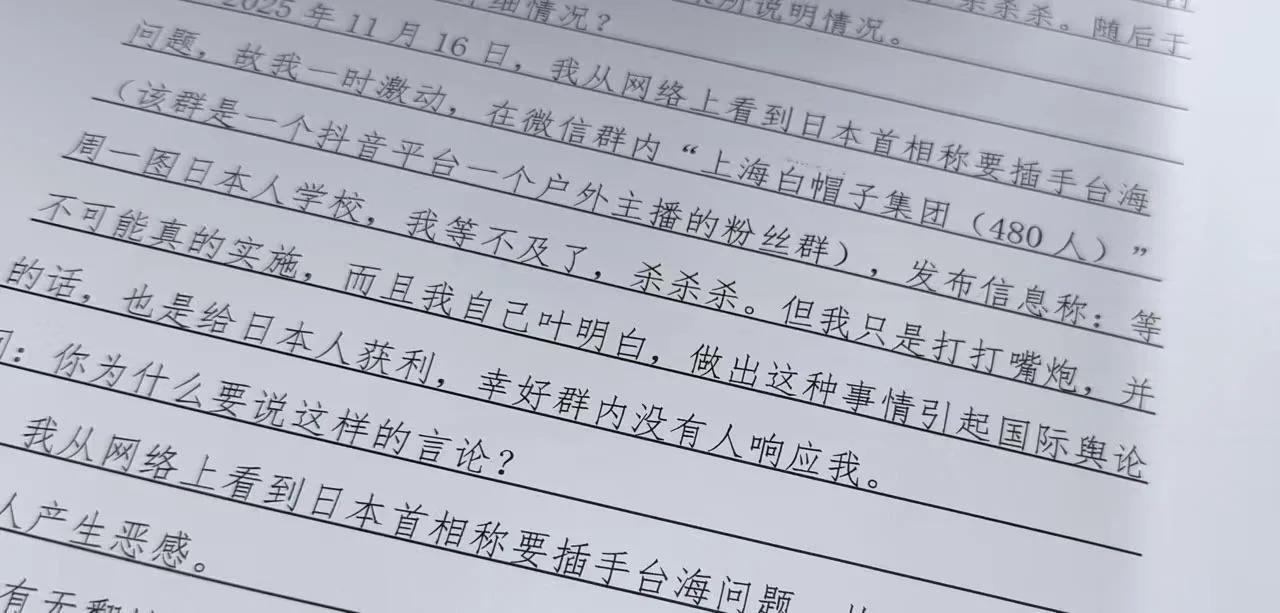 杀杀杀。随后于
所说明情况。
细情况？
2025年11月16日，我从网络上看到日本首相称要插手台海
问题，故我一时激动，在微信群内“上海白帽子集团（480人）”
（该群是一个抖音平台一个户外主播的粉丝群），发布信息称：等
周一图日本人学校，我等不及了，杀杀杀。但我只是打打嘴炮，并
不可能真的实施，而且我自己叶明白，做出这种事情引起国际舆论
的话，也是给日本人获利，幸好群内没有人响应我。
问：你为什么要说这样的言论？
我从网络上看到日本首相称要插手台海问题，
人产生恶感。
有无